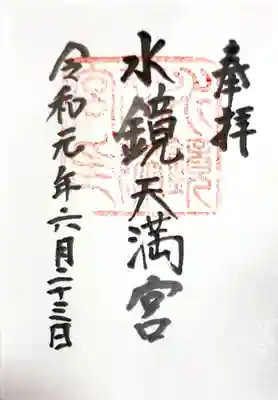 奉拝
水鏡天満宮
令和元年六月二十三日